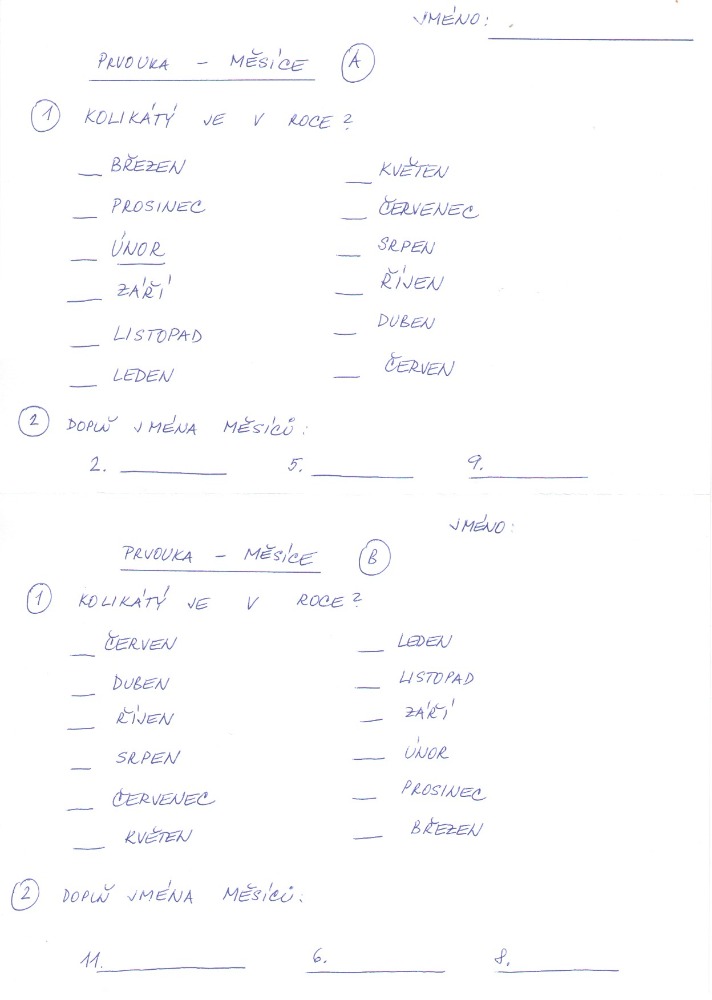 JMÉNO:
PRVOUKA - MĚSÍCE A
1 KOLIKÁTÝ JE V ROCE?
__ BŘEZEN __ KVĚTEN
__ PROSINEC __ ČERVENEC
__ ÚNOR __ SRPEN
__ ZÁŘÍ __ ŘÍJEN
__ LISTOPAD __ DUBEN
__ LEDEN __ ČERVEN
2 DOPLŇ JMÉNA MĚSÍCŮ:
2. ______ 5. ______ 9. ______
JMÉNO:
PRVOUKA - MĚSÍCE B
1 KOLIKÁTÝ JE V ROCE?
__ ČERVEN __ LEDEN
__ DUBEN __ LISTOPAD
__ ŘÍJEN __ ZÁŘÍ
__ SRPEN __ ÚNOR
__ ČERVENEC __ PROSINEC
__ KVĚTEN __ BŘEZEN
2 DOPLŇ JMÉNA MĚSÍCŮ:
11. ______ 6. ______ 8. ______